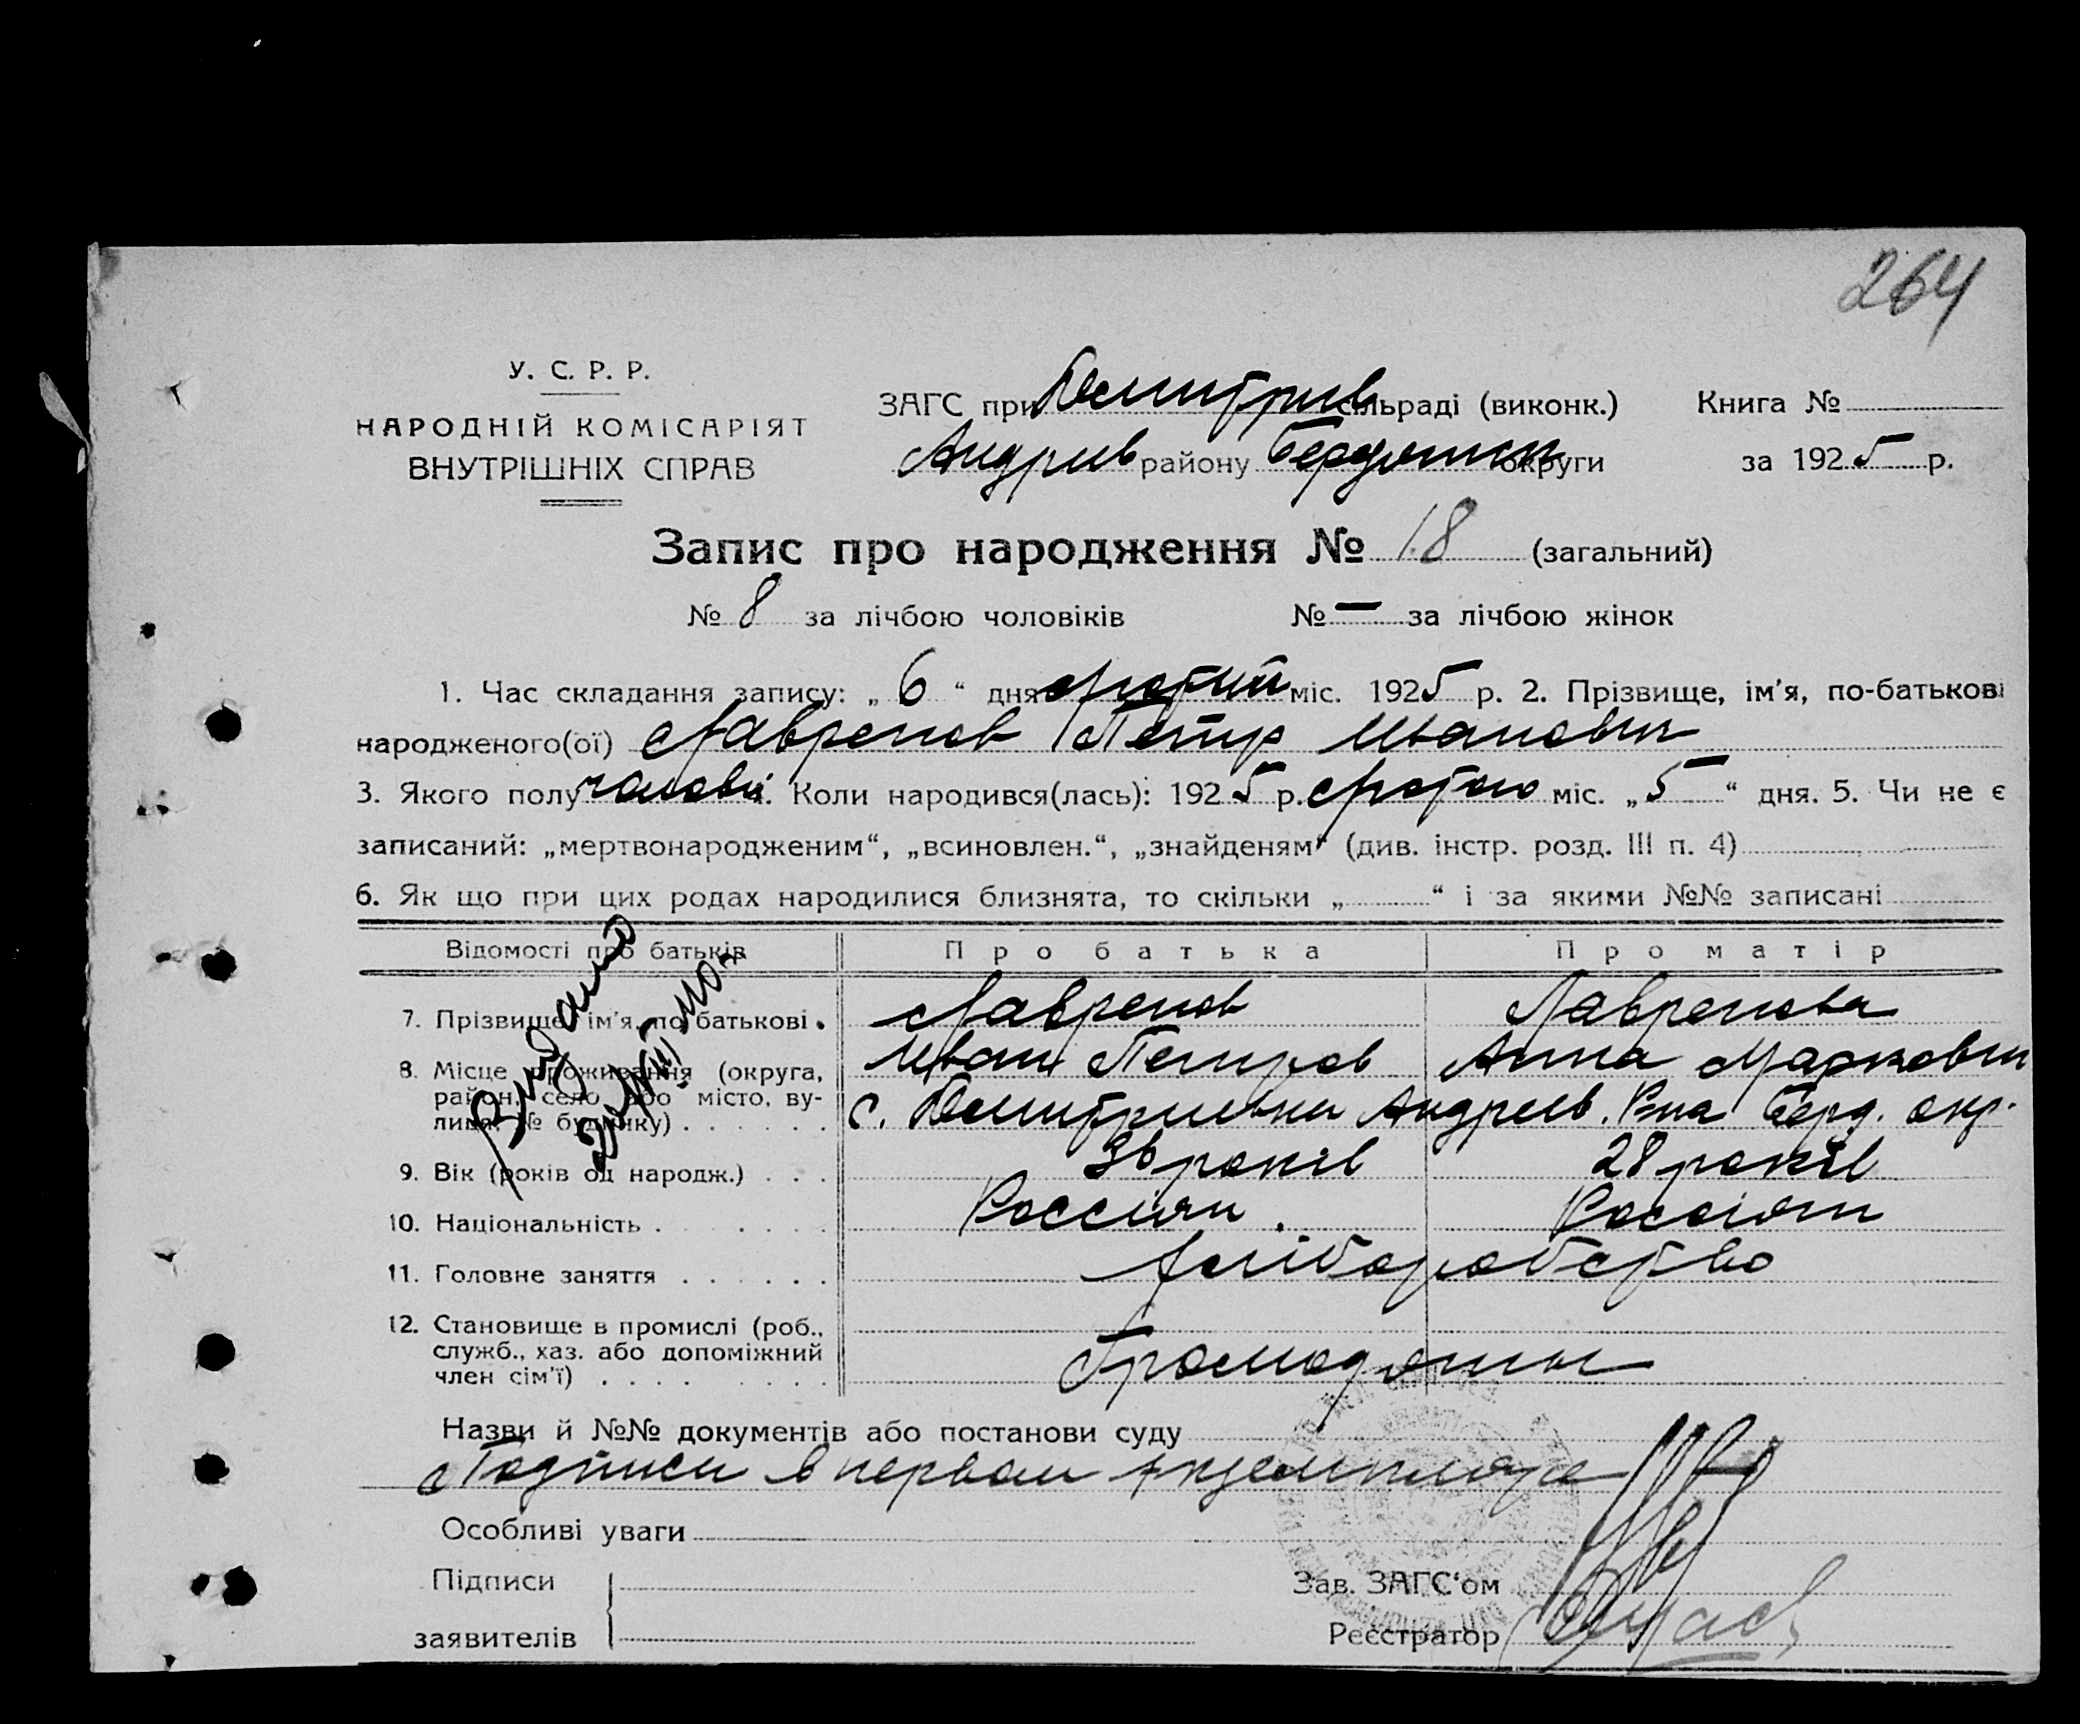 264
У. С. Р. Р.
НАРОДНІЙ КОМІСАРІЯТ
ВНУТРІШНІХ СПРАВ
ЗАГС при Дмитрив сільраді (виконк.) Книга №
Андрив району Бердянськ округи за 1925 р.
Запис про народження № 18 (загальний)
№ 8 за лічбою чоловіків № — за лічбою жінок
1. Час складання запису: „ 6 “ дня лютий міс. 1925 р. 2. Прізвище, ім’я, по-батькові
народженого(ої) Лавренов Петр Иванович
3. Якого полу чолові. Коли народився(лась): 1925 р. лютого міс. „ 5 “ дня. 5. Чи не є
записаний: „мертвонародженим“, „всиновлен.“, „знайденям“ (див. інстр. розд. III п. 4)
6. Як що при цих родах народилися близнята, то скільки „ “ і за якими №№ записані
Відомості про батьків Про батька Про матір
7. Прізвище, ім’я, по батькові. Лавренов Лавренова
Иван Петров Анна Маркович
8. Місце проживання (округа, район, село або місто, вулиця, № будинку) с. Дмитриевки Андреев. Р-на Берд. окр.
9. Вік (років од народж.) 36 років 28 років
10. Національність Россіян. Россіян
11. Головне заняття Хліборобство
12. Становище в промислі (роб., служб., хаз. або допоміжний член сім’ї) Громадяны
Назви й №№ документів або постанови суду
Подписи в первом экземпляре
Особливі уваги
Підписи
заявителів
Зав. ЗАГС‘ом
Реєстратор